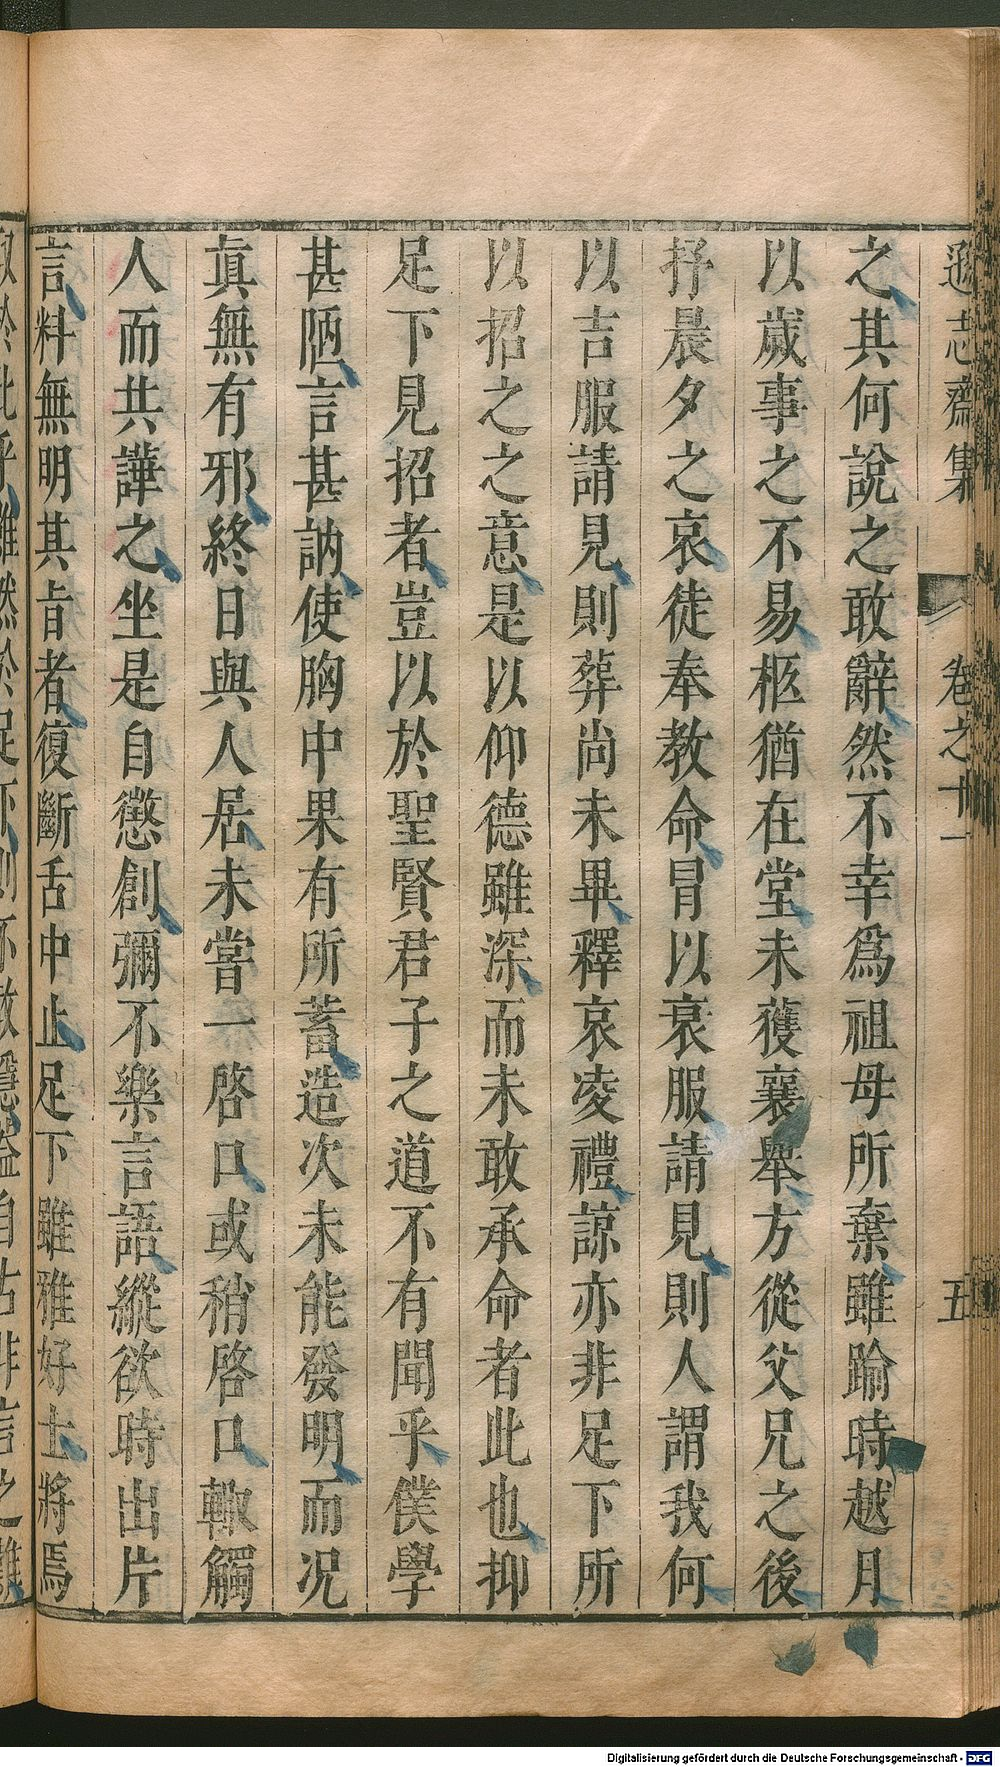 遜志齋集 卷之十一 五
之其何說之敢辭然不幸爲祖母所棄雖踰時越月
以歲事之不易柩猶在堂未獲襄舉方從父兄之後
抒晨夕之哀徒奉教命冒以衰服請見則人謂我何
以吉服請見則葬尚未畢釋哀凌禮諒亦非足下所
以招之之意是以仰德雖深而未敢承命者此也抑
足下見招者豈以於聖賢君子之道不有聞乎僕學
甚陋言甚訥使胸中果有所蓄造次未能發明而况
眞無有邪終日與人居未嘗一啓口或稍啓口輙觸
人而共譁之坐是自懲創彌不樂言語縱欲時出片
言料無明其旨者復斷舌中止足下雖雅好士將焉
於此乎雖然於足下則不敢隱葢自古非言之難
Digitalisierung gefördert durch die Deutsche Forschungsgemeinschaft - DFG